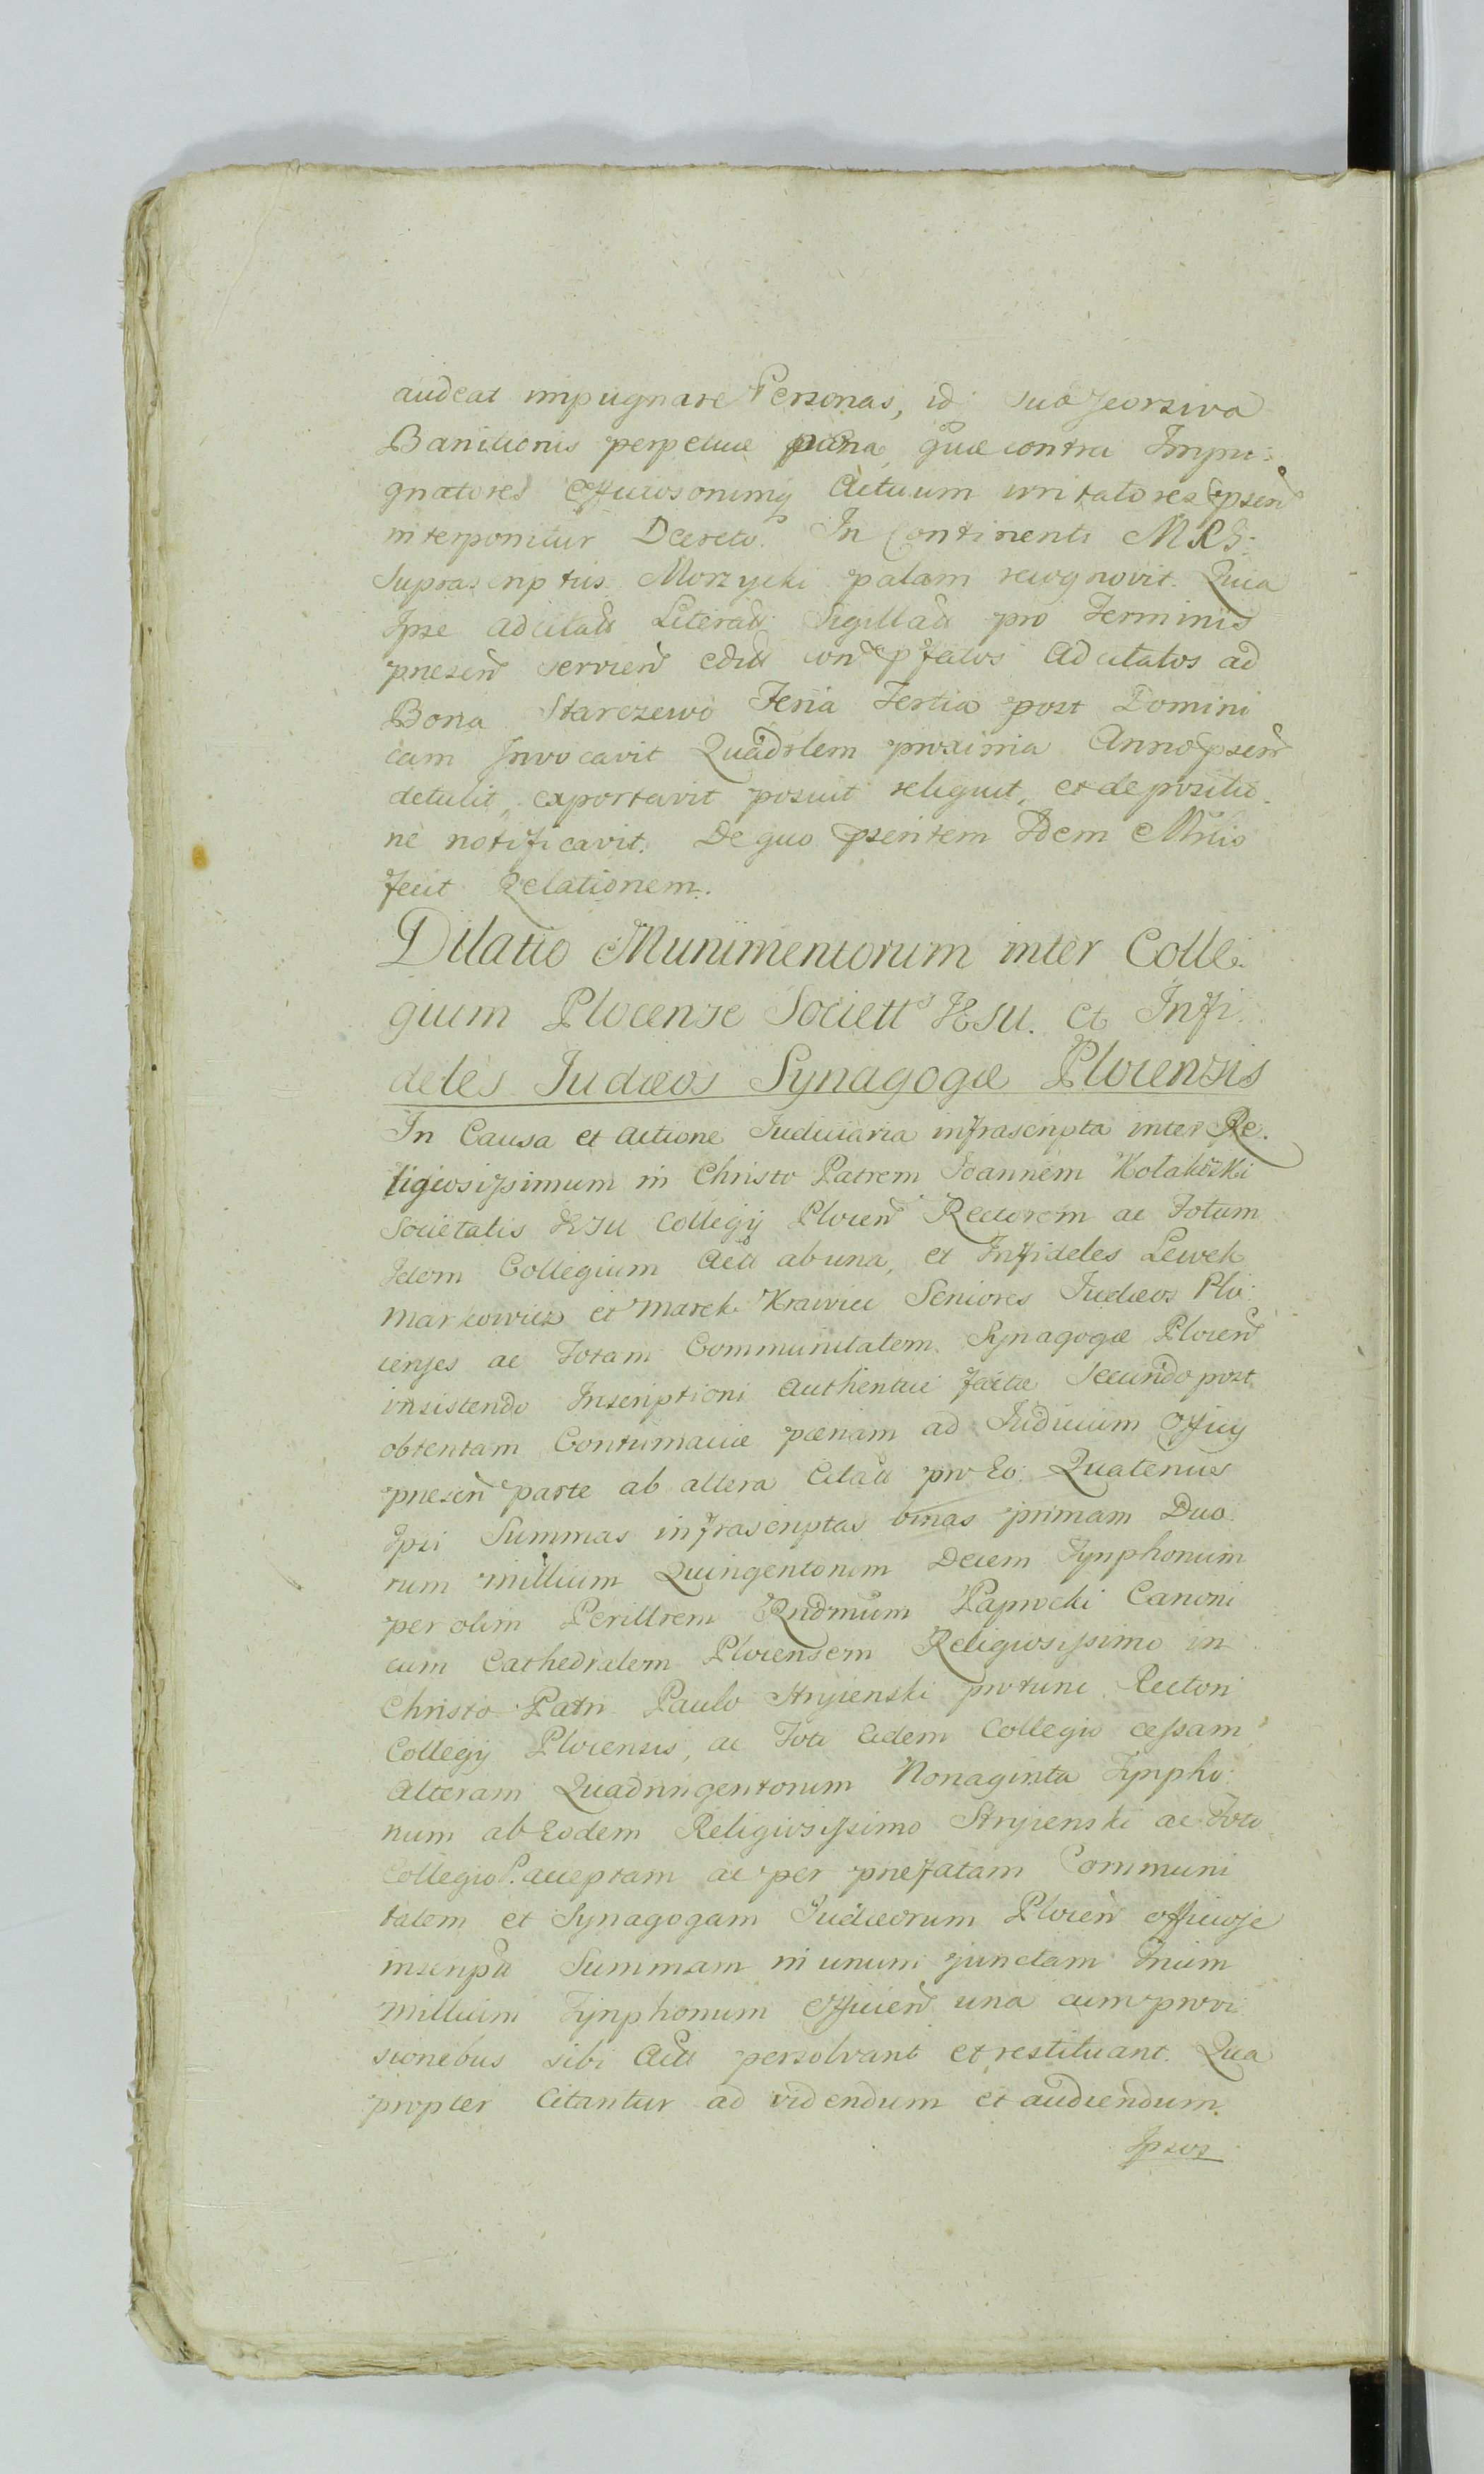 audeat impugnare Personas, id sub seorsiva
Banitionis perpetuæ pœna, quæ contra Impu:
gnatores Officiosorumq Actuum irritatores psen
interponitur Decreto. In Continenti MRG:
Suprascriptus Morzycki palam recognovit. Quia
Ipse adcitatt Literatt Sigillatt pro Terminis
præsen servien edit con præfatos Adcitatos ad
Bona Starczewo Feria Tertia post Domini
cam Invocavit Quadrlem proxima Anno psen
detulit, exportavit posuit reliquit, et depositio
ne notificavit. De quo psentem Idem Mnlio
fecit Relationem.
Dilatio Munimentorum inter Colle:
gium Plocense Societts IESU. et Infi
deles Judæos Synagogæ Plocensis
In Causa et Actione Judiciaria infrascripta inter Re.
ligiosissimum in Christo Patrem Joannem Kołakoski
Societatis IESU Collegij Plocen Rectorem ac Totum
Idem Collegium Actt ab una, et Infideles Lewek
Markowicz et Marek Krawiec Seniores Judæos Plo:
censes ac Totam Communitatem Synagogæ Plocen
insistendo Inscriptioni Authenticæ factæ Secundo post
obtentam Contumaciæ pœnam ad Judicium Officij
præsen parte ab altera Citatt pro Eo: Quatenus
Ipsi Summas infrascriptas binas primam Duo:
rum millium Quingentorum Decem Tynphorum
per olim Perillrem Rndmum Paprocki Canoni
cum Cathedralem Plocensem Religiosissimo in
Christo Patri Paulo Stryienski protunc Rectori
Collegij Plocensis, ac Toti Eidem Collegio cessam,
Alteram Quadringentorum Nonaginta Tynpho:
rum ab Eodem Religiosissimo Stryienski ac Toto
Collegio P. acceptam ac per præfatam Communi
tatem et Synagogam Judæorum Plocen officiose
inscriptt Summam in unum junctam Trium
millium Tynphorum Efficien una cum provi
sionebus sibi Actt persolvant et restituant. Qua
propter Citantur ad videndum et audiendum
Ipsos